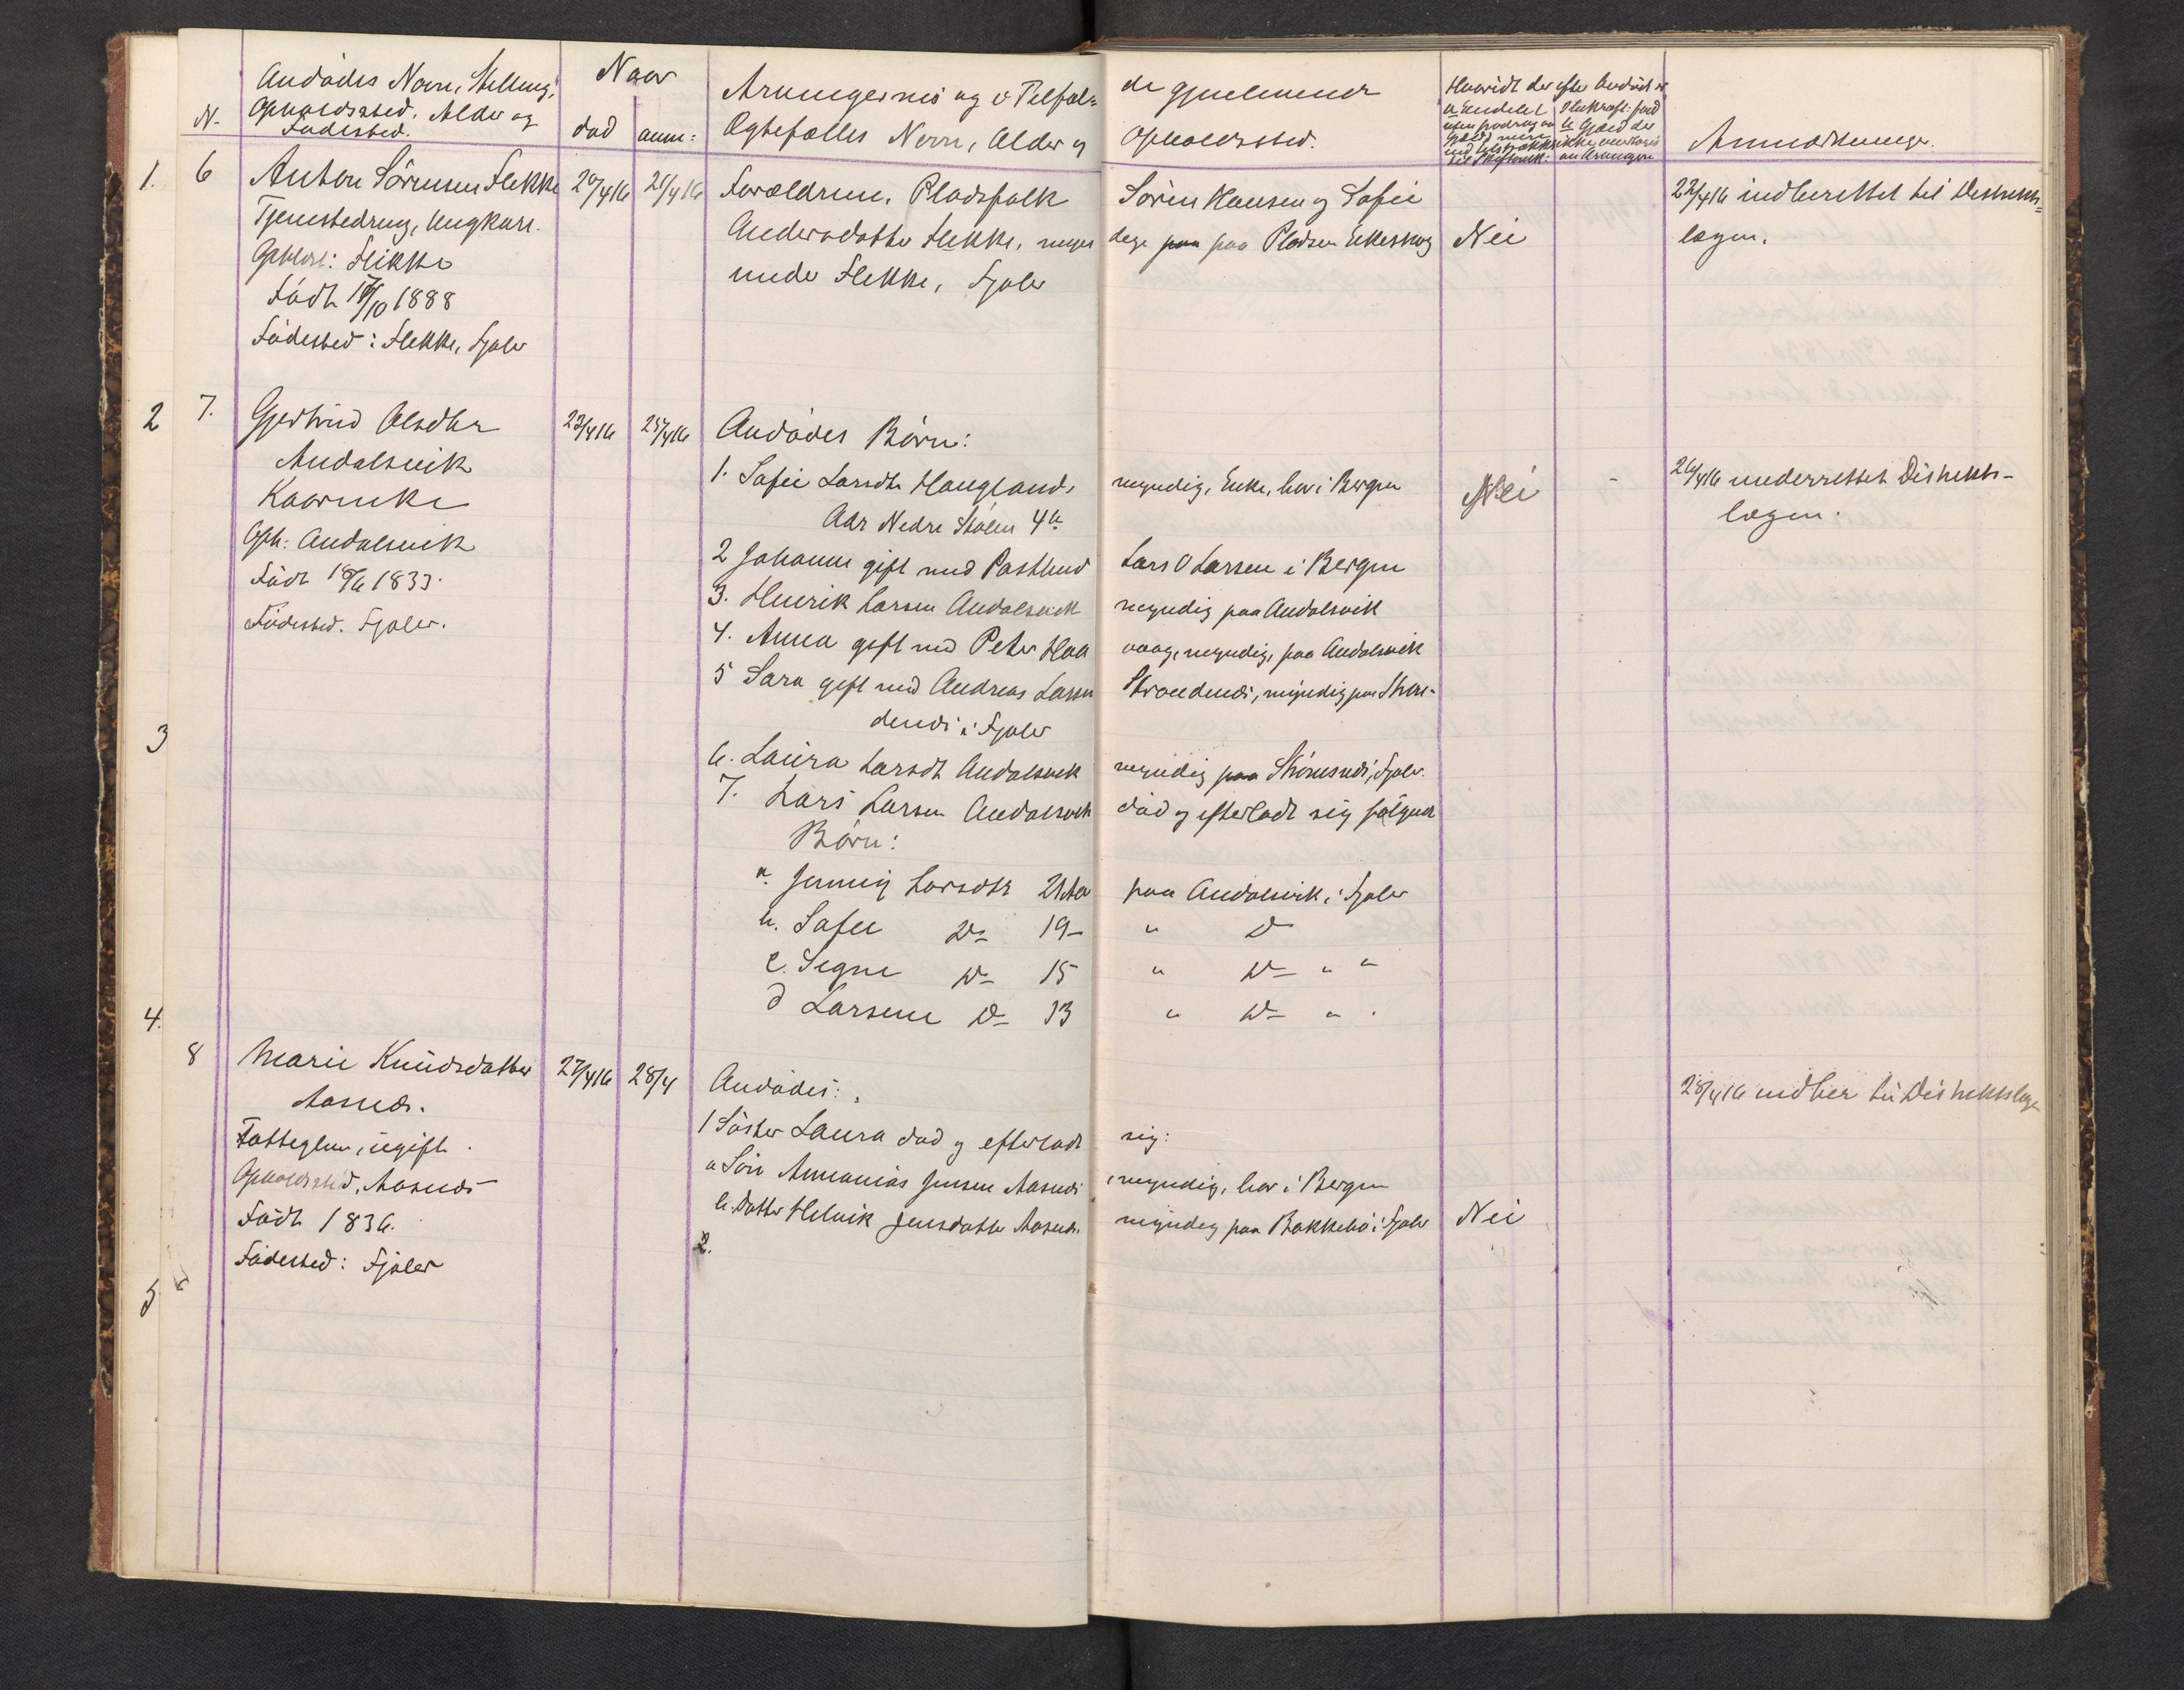 N.
Avdødes Navn, Stilling,
Opholdssted, Alder og
Fødested.
Naar
død
anm:
Arvingernes og i Tilfælde gjenlevende
Ægtefælles Navn, Alder og Opholdssted.
Hvorvidt der efter Avdøde er
Anmærkninger.
1. 6
Anton Sørensen Flekke
Tjenestedreng, Ungkarl.
Opholst: Flekke
Født 1888
Fødested: Flekke, Fjaler
20/4 16
21/4 16
Forældrene, Pladsfolk Søren Hansen og Sofie
Andersdatter Flekke, myndige paa Pladsen
under Flekke, Fjaler
Nei
22/4 16 indberettet til Distrikts=
lægen.
2 7.
Gjertrud Olsdtr
Andalsvik
Kaarenke
Oph: Andalsvik
Født 18/6 1833.
Fødested. Fjaler.
23/4 16
25/4 16
Avdødes Børn:
1. Sofie Larsdtr Haugland, myndig, Enke, bor i Bergen
Adr Nedre Stølen 4a
2 Johanne gift med Postbud Lars O Larsen i Bergen
3. Henrik Larsen Andalsvik myndig paa Andalsvik
4. Anna gift med Peter Haavaag, myndig, paa Andalsvik
5 Sara gift med Andreas Larsen Strandenæs, myndig paa Stran-
denæs i Fjaler
6. Laura Larsdt Andalsvik myndig paa Strømsnes, Fjaler.
7. Lars Larsen Andalsvik død og efterladt sig følgende
Børn:
a. Jenny Larsdtr 21 Aar paa Andalsvik i Fjaler
b. Sofie Do 19 - " Do
c. Signe Do 15 " Do " "
d Larsine Do 13 " Do " "
Nei
-
26/4 16 underrettet Distrikts-
lægen.
3
4.
8
Marie Knudsdatter
Aasnæs.
Fattiglem, ugift.
Opholdssted, Aasnæs
Født 1836.
Fødested: Fjaler
27/4 16
28/4
Avdødes:
1 Søster Laura død og efterladt sig:
a Søn Annanias Jensen Aasnæs, myndig, bor i Bergen
b. Datter Helvik Jensdatter Aasnæs. myndig paa Bakkebø i Fjaler
2.
Nei
28/4 16 indber til Distriktslægen
5